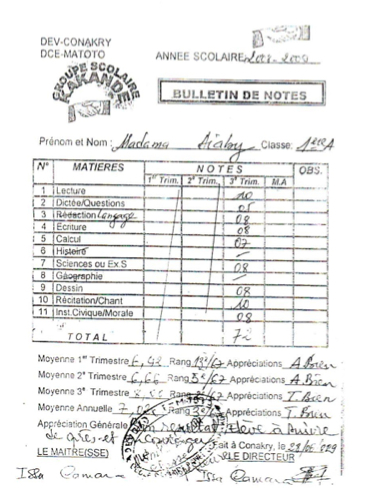 DEV-CONAKRY
DCE-MATOTO
ANNEE SCOLAIRE
GROUPE SCOLAIRE
KAKANDE
BULLETIN DE NOTES
Prénom et Nom : Madama Diaby Classe:
N° MATIERES NOTES OBS.
1er Trim. 2e Trim. 3e Trim. M.A
1 Lecture 10
2 Dictée/Questions 05
3 Rédaction Langage 08
4 Ecriture 08
5 Calcul 07
6 Histoire
7 Sciences ou Ex.S 08
8 Géographie
9 Dessin 08
10 Récitation/Chant 10
11 Inst.Civique/Morale 08
TOTAL 72
Moyenne 1er Trimestre Rang Appréciations A. Bien
Moyenne 2e Trimestre 6,66 Rang Appréciations A. Bien
Moyenne 3e Trimestre Rang Appréciations T. Bien
Moyenne Annuelle Rang Appréciations T. Bien
Appréciation Générale Elève à suivre
de près et
Fait à Conakry, le
LE MAITRE(SSE) LE DIRECTEUR
Camara Camara